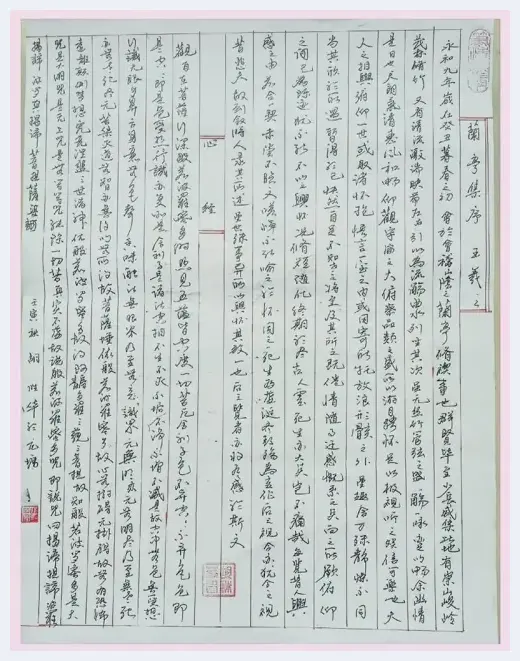 蘭亭集序 王羲之
永和九年歲在癸丑暮春之初會於會稽山陰之蘭亭脩禊事也群賢畢至少長咸集此地有崇山峻嶺
茂林脩竹又有清流激湍映帶左右引以為流觴曲水列坐其次雖無絲竹管弦之盛一觴一詠亦足以暢叙幽情
是日也天朗氣清惠風和暢仰觀宇宙之大俯察品類之盛所以遊目騁懷足以極視聽之娛信可樂也夫
人之相與俯仰一世或取諸懷抱悟言一室之內或因寄所託放浪形骸之外雖趣舍萬殊靜躁不同
當其欣於所遇暫得於己快然自足不知老之將至及其所之既倦情隨事遷感慨係之矣向之所欣俯仰
之間已為陳迹猶不能不以之興懷況脩短隨化終期於盡古人云死生亦大矣豈不痛哉每覽昔人興
感之由若合一契未嘗不臨文嗟悼不能喻之於懷固知一死生為虛誕齊彭殤為妄作後之視今亦猶今之視
昔悲夫故列敘時人錄其所述雖世殊事異所以興懷其致一也后之覽者亦將有感於斯文
心經
觀自在菩薩行深般若波羅蜜多時照見五蘊皆空度一切苦厄舍利子色不異空空不異色色即
是空空即是色受想行識亦復如是舍利子是諸法空相不生不滅不垢不淨不增不減是故空中無色無受想
行識无眼耳鼻舌身意无色聲香味觸法无眼界乃至无意識界无无明亦无无明盡乃至无老死
亦无老死盡无苦集滅道无智亦无得以无所得故菩提薩埵依般若波羅蜜多故心无掛礙无掛礙故无有恐怖
遠離顛倒夢想究竟涅槃三世諸佛依般若波羅蜜多故得阿耨多羅三藐三菩提故知般若波羅蜜多是大
咒是大明咒是无上咒是无等等咒能除一切苦真實不虛故說般若波羅蜜多咒即說咒曰揭諦揭諦波羅
揭諦波羅僧揭諦菩提薩婆訶
壬寅秋 胡